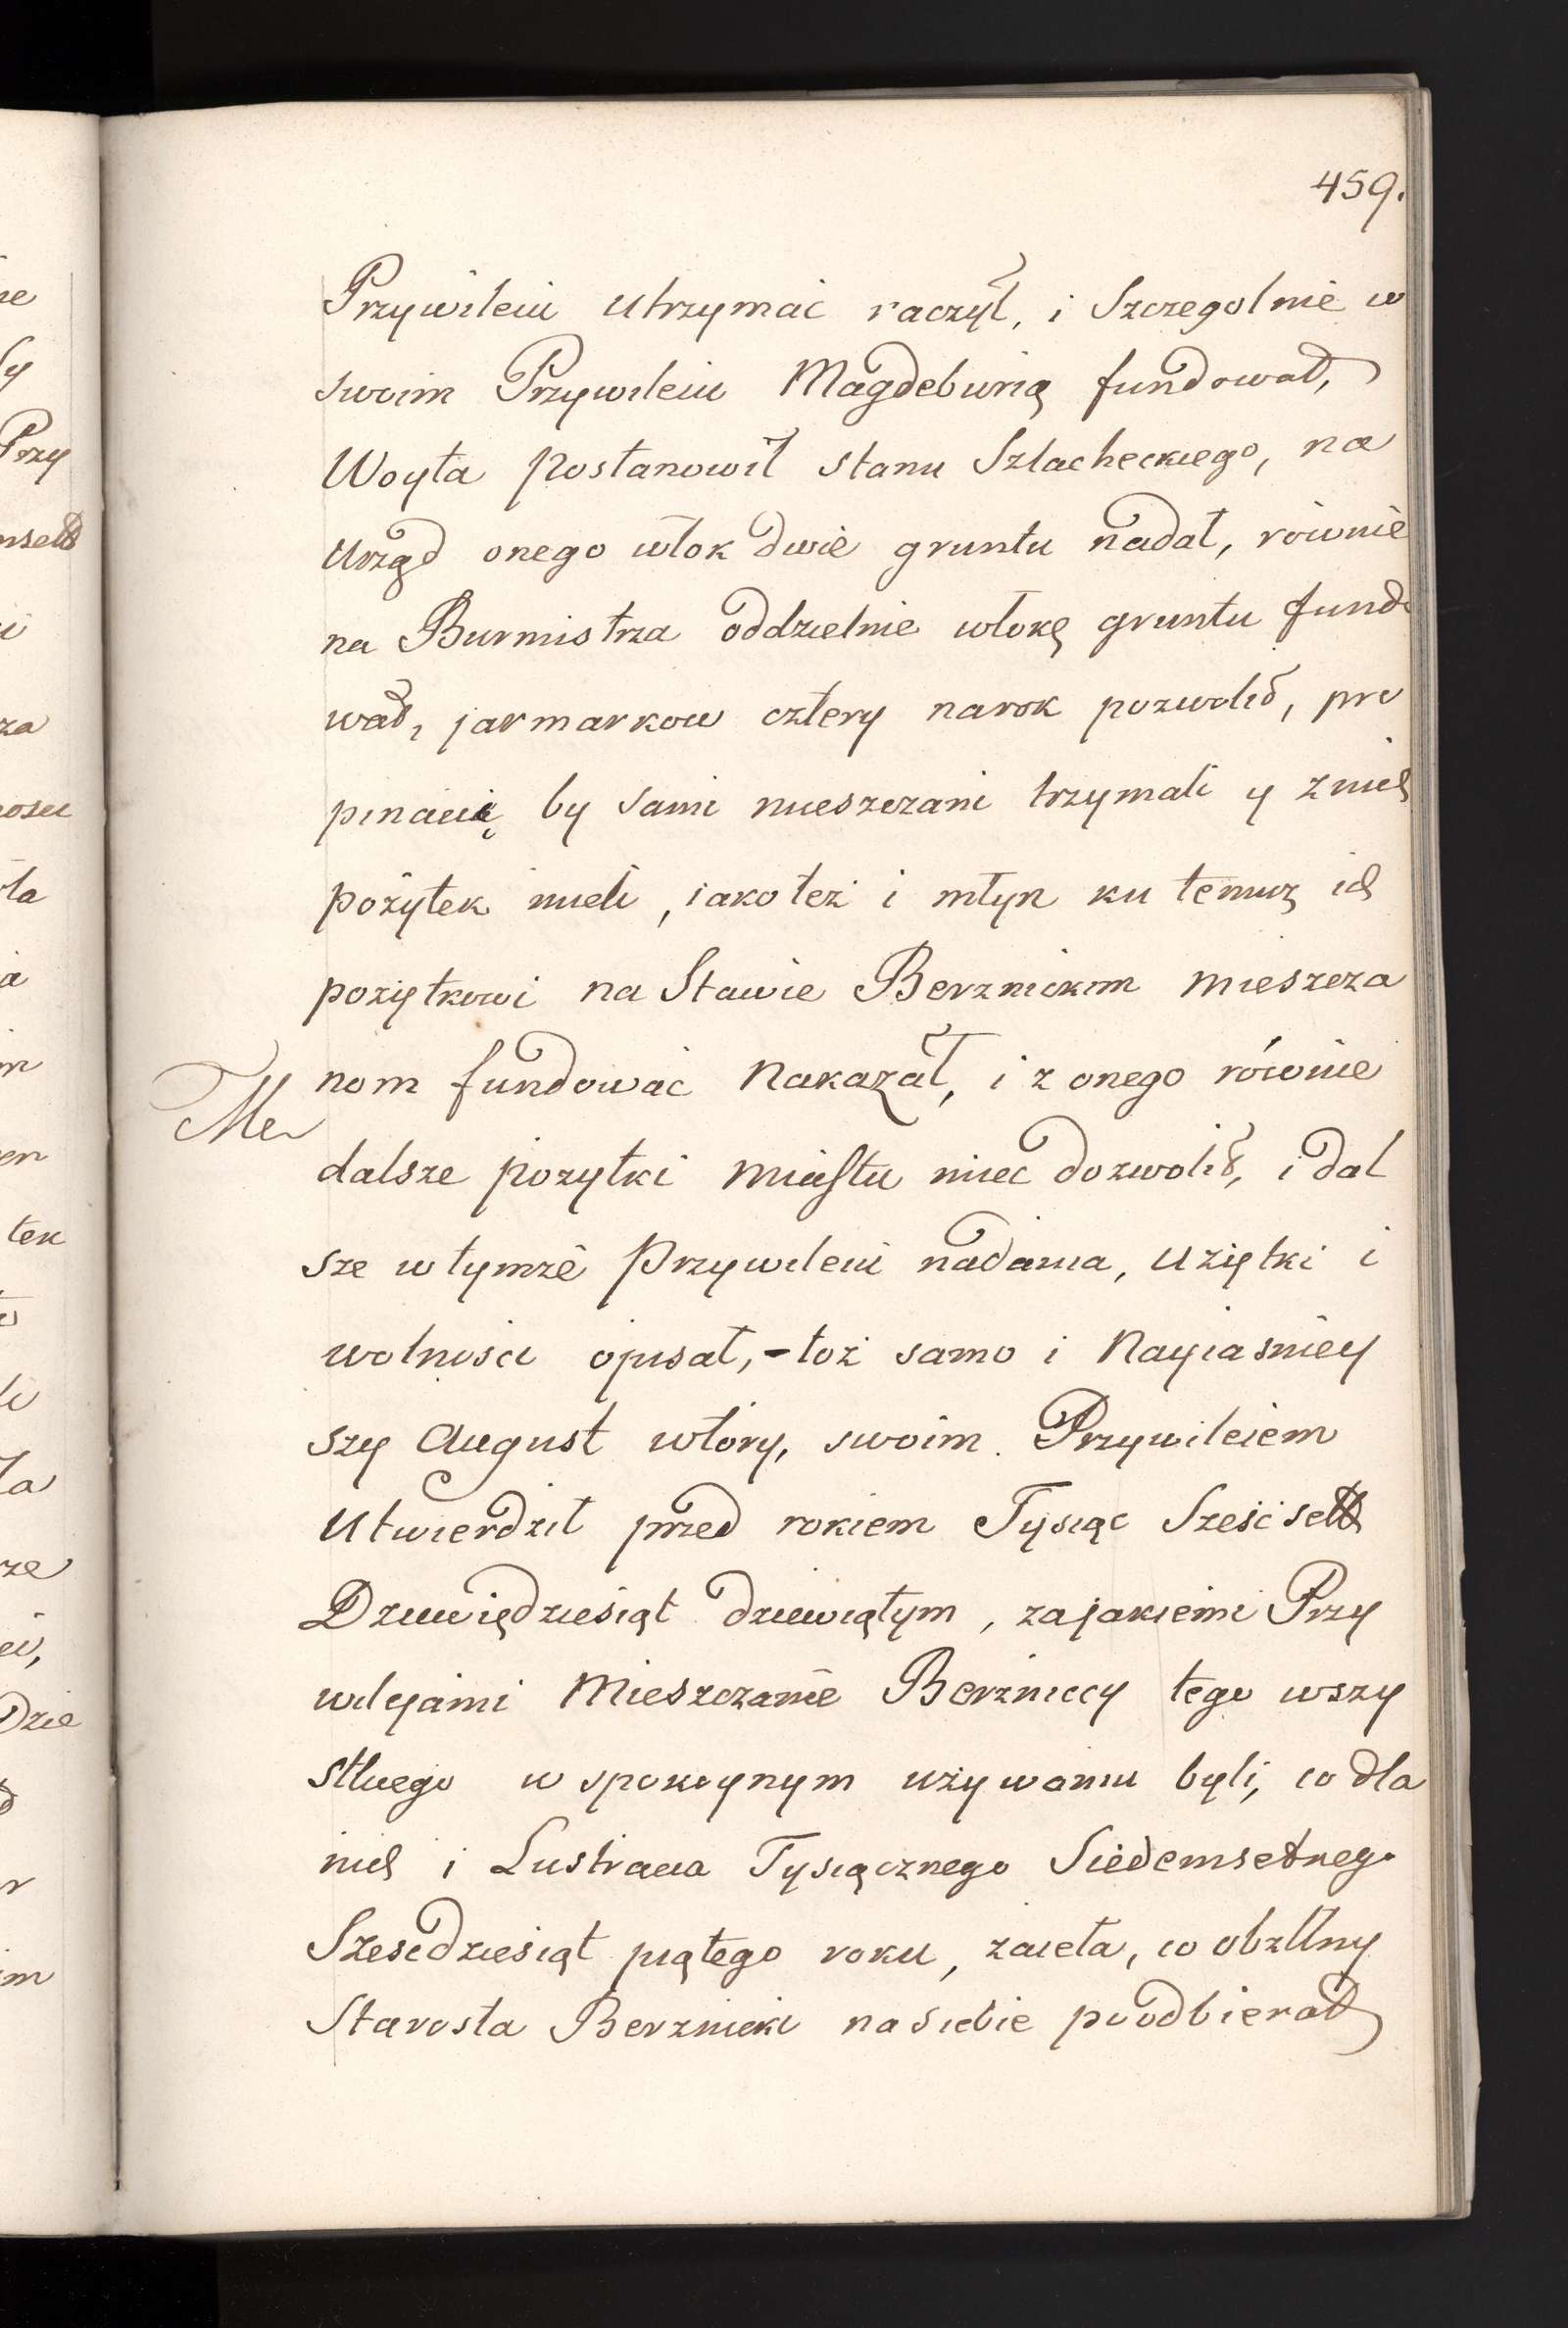 459.
Przywileiu utrzymać raczył, i Szczegolnie w
swoim Przywileiu Magdeburią fundował,
Woyta postanowił stanu Szlacheckiego, na
Urząd onego włok dwie gruntu nadał, równie
na Burmistrza oddzielnie włokę gruntu fundo
wał, jarmarkow cztery narok pozwolił, pro
pinacią by sami mieszczani trzymali y znich
pożytek mieli, iako też i młyn ku temuż ich
pożytkowi na Stawie Berznickim mieszcza
nom fundować Nakazał, i z onego równie
dalsze pozytki miastu mieć dozwolił, i dal
sze w tymże Przywileiu nadania, użytki i
wolności opisał, - toż samo i Nayiaśniey
szy August wtóry, swoim Przywileiem
Utwierdził przed rokiem Tysiąc Sześćset
Dziewiędziesiąt dziewiątym, zajakiemi Przy
wilejami Mieszczanie Berzniccy tego wszy
stkiego w spokoynym używaniu byli, co dla
nich i Lustracia Tysiącznego Siedemsetnego
Szescdziesiąt piątego roku, zaięła, co
Starosta Berznicki na siebie poodbierał